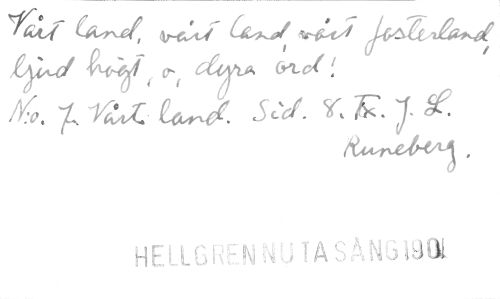 Vårt land, vårt land, vårt fosterland,
ljud högt, o, dyra ord!
N:o. 7. Vårt land. Sid. 8. Tx. J. L.
Runeberg.
HELLGREN NUTA SÅNG 1901